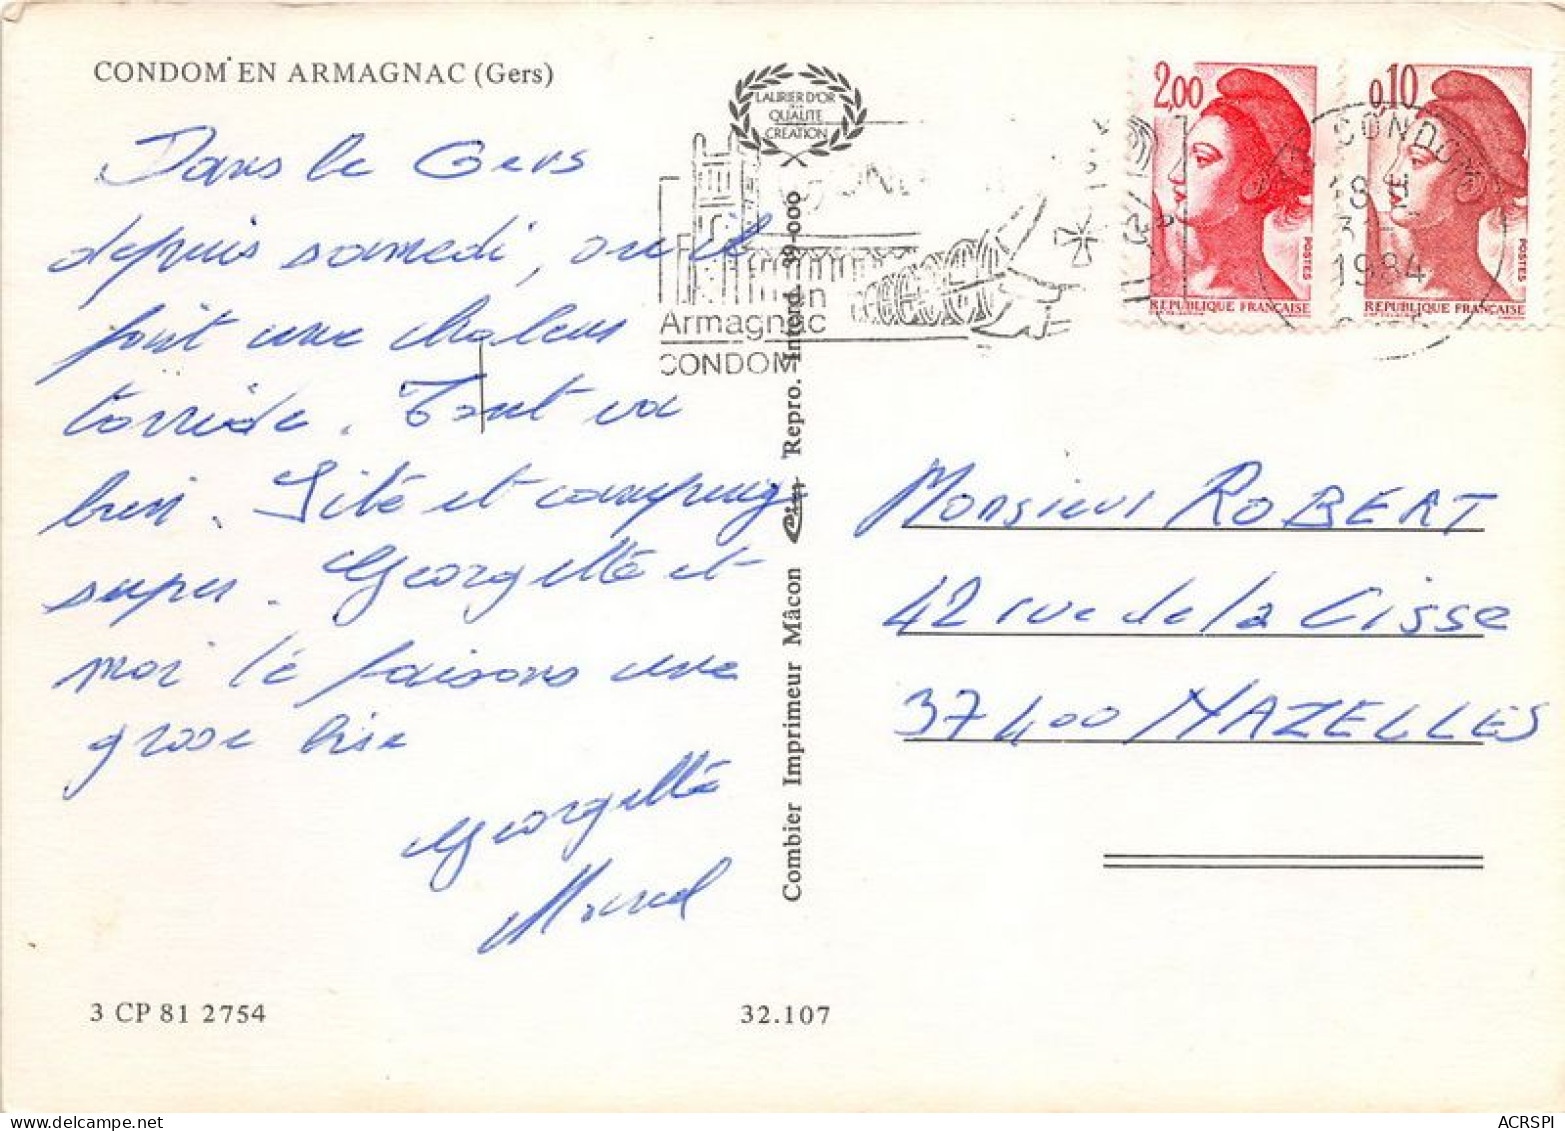 CONDOM EN ARMAGNAC (Gers)
LAURIER D'OR
QUALITÉ
CRÉATION
Dans le Gers
depuis samedi, ou il
fait une chaleur
torride. Tout va
bien. Gîte et camping
super. Georgette et
moi te faisons une
grosse bise
Georgette
Marcel
3 CP 81 2754
32.107
Combier Imprimeur Mâcon Cim Repro. Interd.
en
Armagnac
CONDOM
2,00
POSTES
REPUBLIQUE FRANÇAISE
0,10
POSTES
REPUBLIQUE FRANÇAISE
CONDOM
18 H
1984
Monsieur ROBERT
42 rue de la Cisse
37400 NAZELLES
ACRSPI